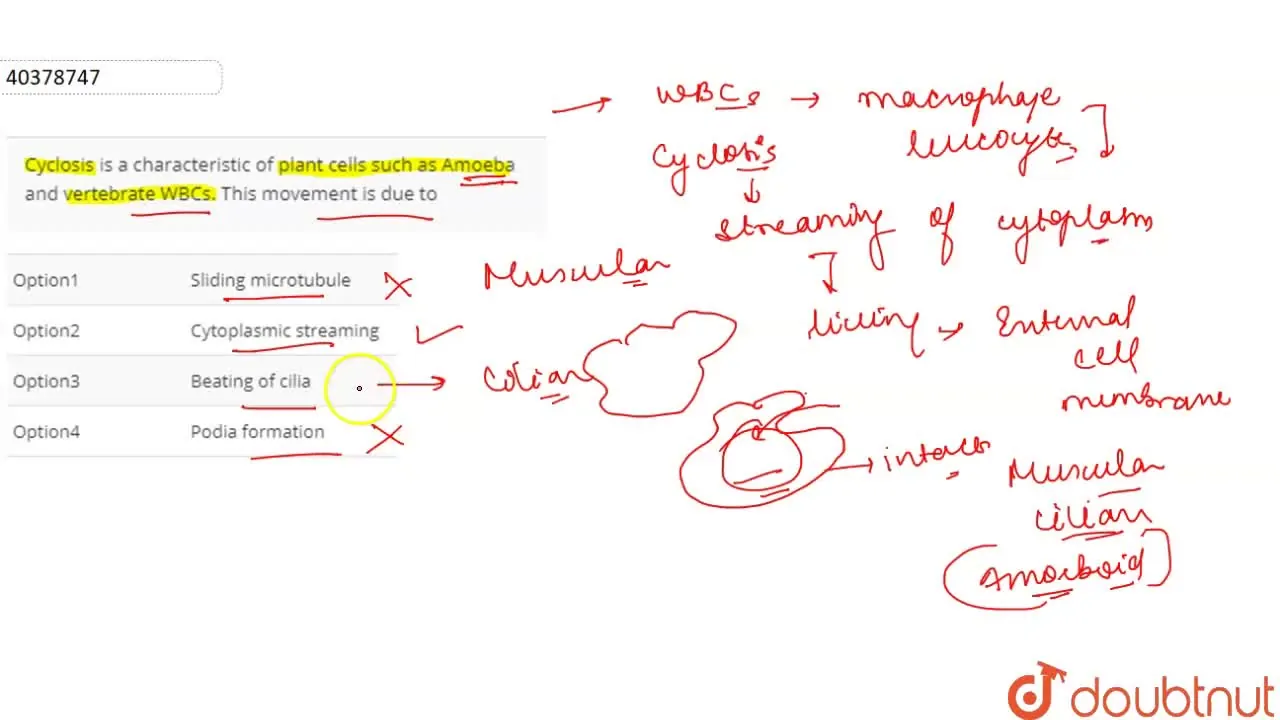 40378747
Cyclosis is a characteristic of plant cells such as Amoeba
and vertebrate WBCs. This movement is due to
Option1 Sliding microtubule
Option2 Cytoplasmic streaming
Option3 Beating of cilia
Option4 Podia formation
WBCs → macrophage
leucocyte
Cyclosis
streaming of cytoplasm
Muscular
living → Enternal
cell
membrane
Cilian
Muscular
cilian
Amoeboid
doubtnut